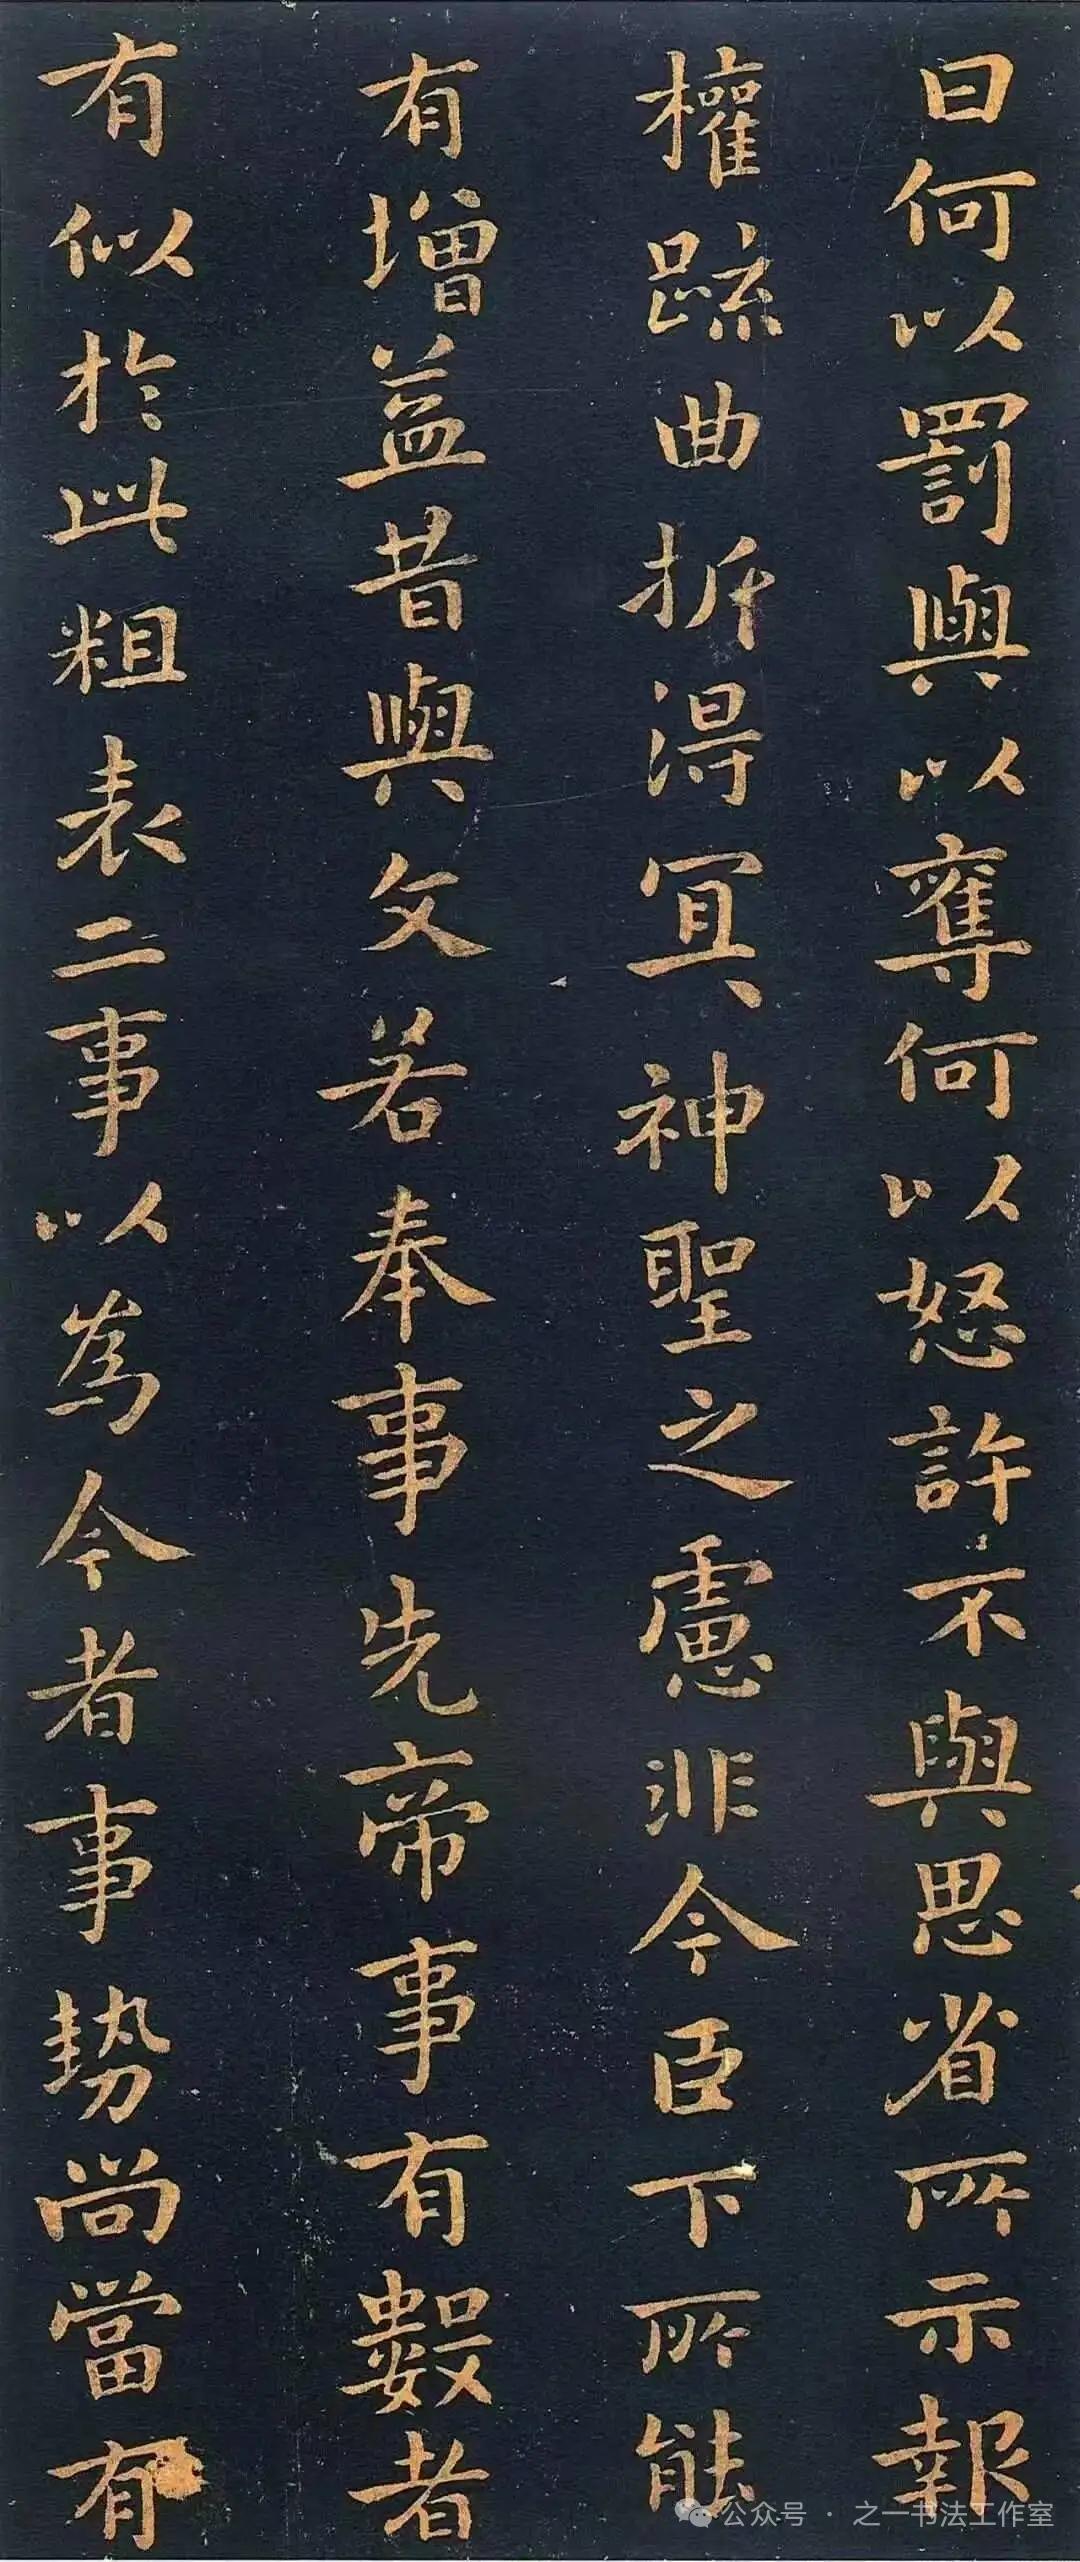 曰何以罰與以奪何以怒許不與思省所示報
權疏曲折得宜神聖之慮非今臣下所能
有增益昔與文若奉事先帝事有數者
有似於此粗表二事以為今者事勢尚當有
公众号 · 之一书法工作室